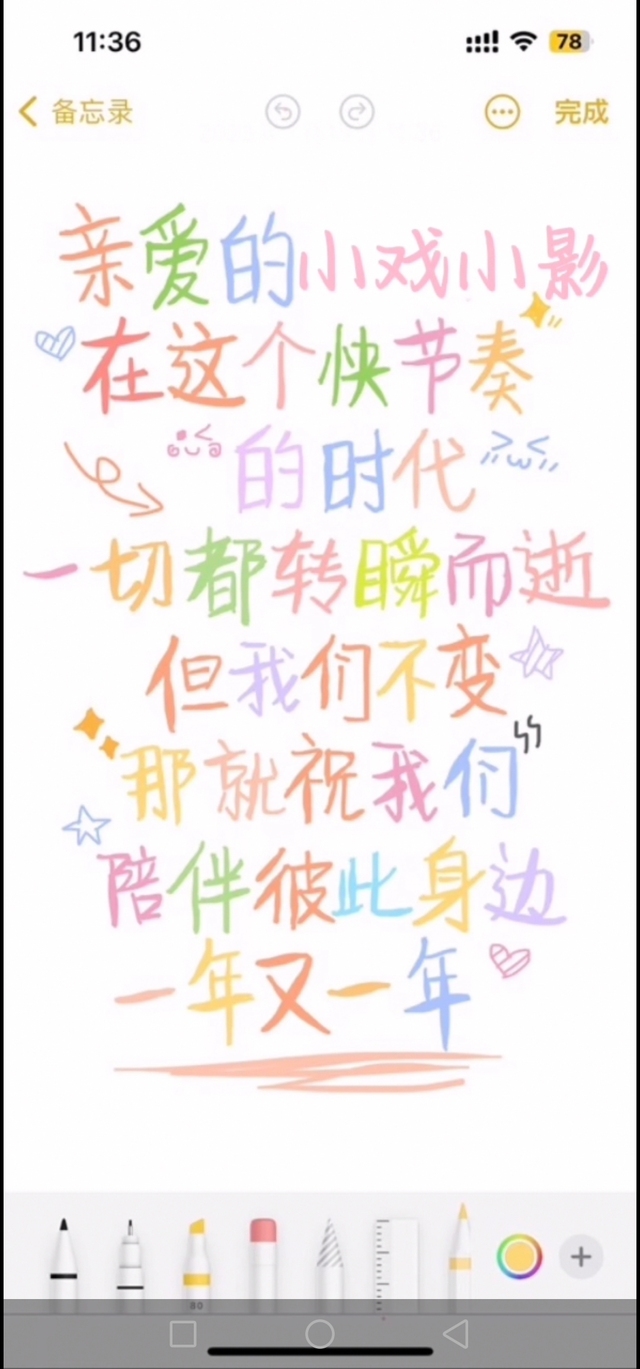 11:36 78
备忘录 完成
亲爱的小戏小影
在这个快节奏
的时代
一切都转瞬而逝
但我们不变
那就祝我们
陪伴彼此身边
一年又一年
80